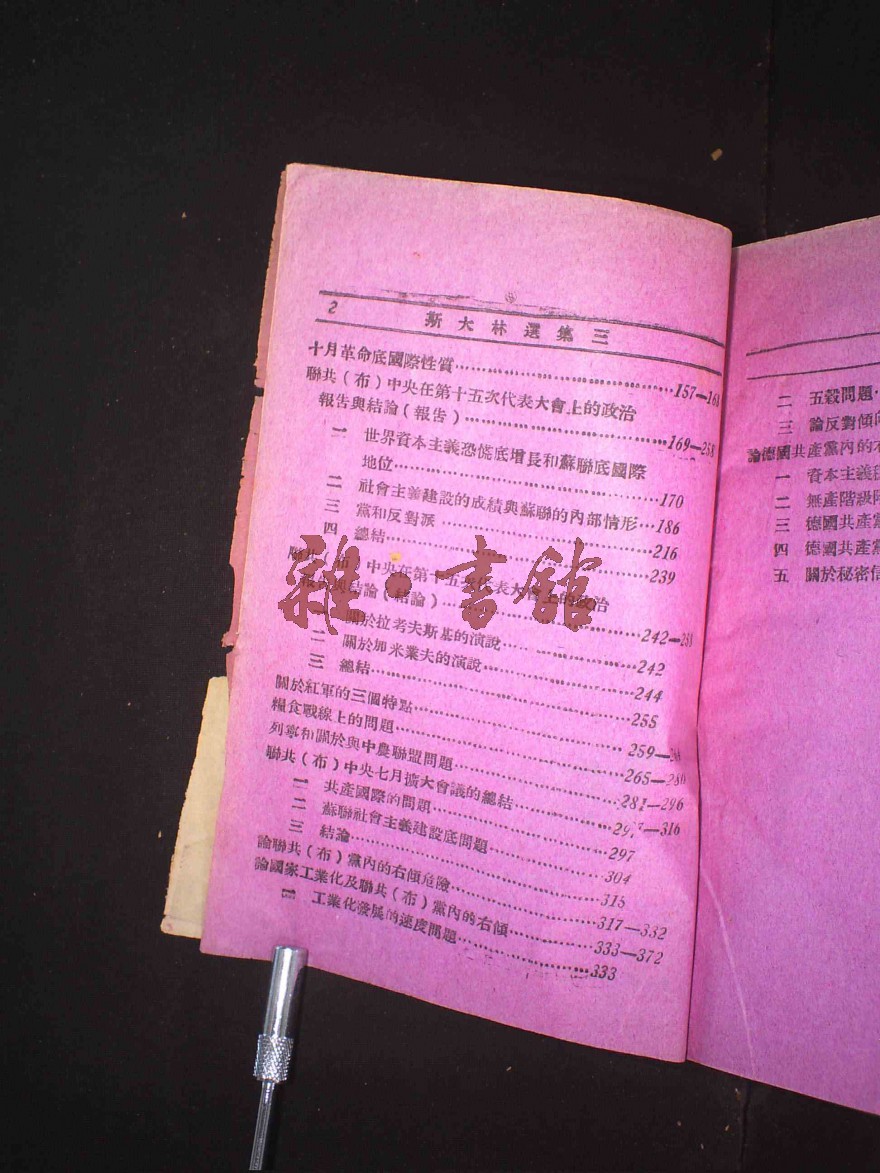 2
斯大林選集三
十月革命底國際性質……157—168
聯共（布）中央在第十五次代表大會上的政治
報告與結論（報告）……169—258
一 世界資本主義恐慌底增長和蘇聯底國際
地位……170
二 社會主義建設的成績與蘇聯的內部情形…186
三 黨和反對派……216
四 總結……239
聯共（布）中央在第十五次代表大會上的政治
報告與結論（結論）……242—258
一 關於拉考夫斯基的演說……242
二 關於加米業夫的演說……244
三 總結……255
關於紅軍的三個特點……259—
糧食戰線上的問題……265—280
列寧和關於與中農聯盟問題……281—296
聯共（布）中央七月擴大會議的總結……297—316
一 共產國際的問題……297
二 蘇聯社會主義建設底問題……304
三 結論……315
論聯共（布）黨內的右傾危險……317—332
論國家工業化及聯共（布）黨內的右傾……333—372
一 工業化發展的速度問題……333
二 五穀問題
三 論反對傾向
論德國共產黨內的右
一 資本主義
二 無產階級
三 德國共產黨
四 德國共產黨
五 關於秘密信
雜·書館